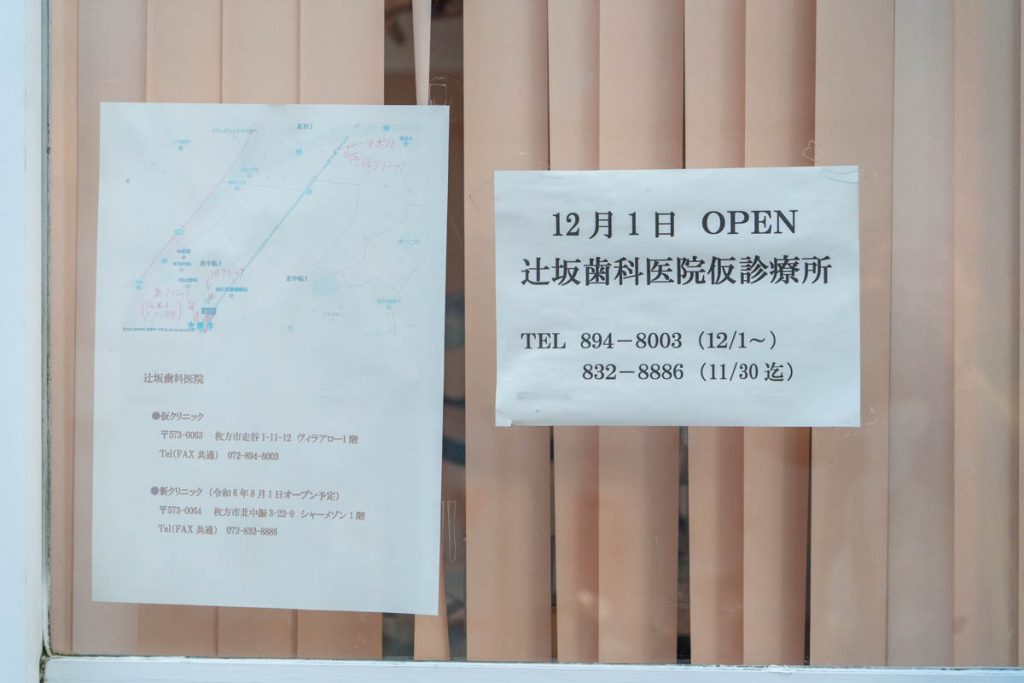 走谷2
北中振1
北中振3
光善寺
辻坂歯科医院
●仮クリニック
〒573-0063 枚方市走谷1-11-12 ヴィラアロー1階
Tel(FAX共通) 072-894-8003
●新クリニック (令和6年8月1日オープン予定)
〒573-0064 枚方市北中振3-22-9 シャーメゾン1階
Tel(FAX共通) 072-832-8886
12月1日 OPEN
辻坂歯科医院仮診療所
TEL 894-8003 (12/1～)
832-8886 (11/30迄)